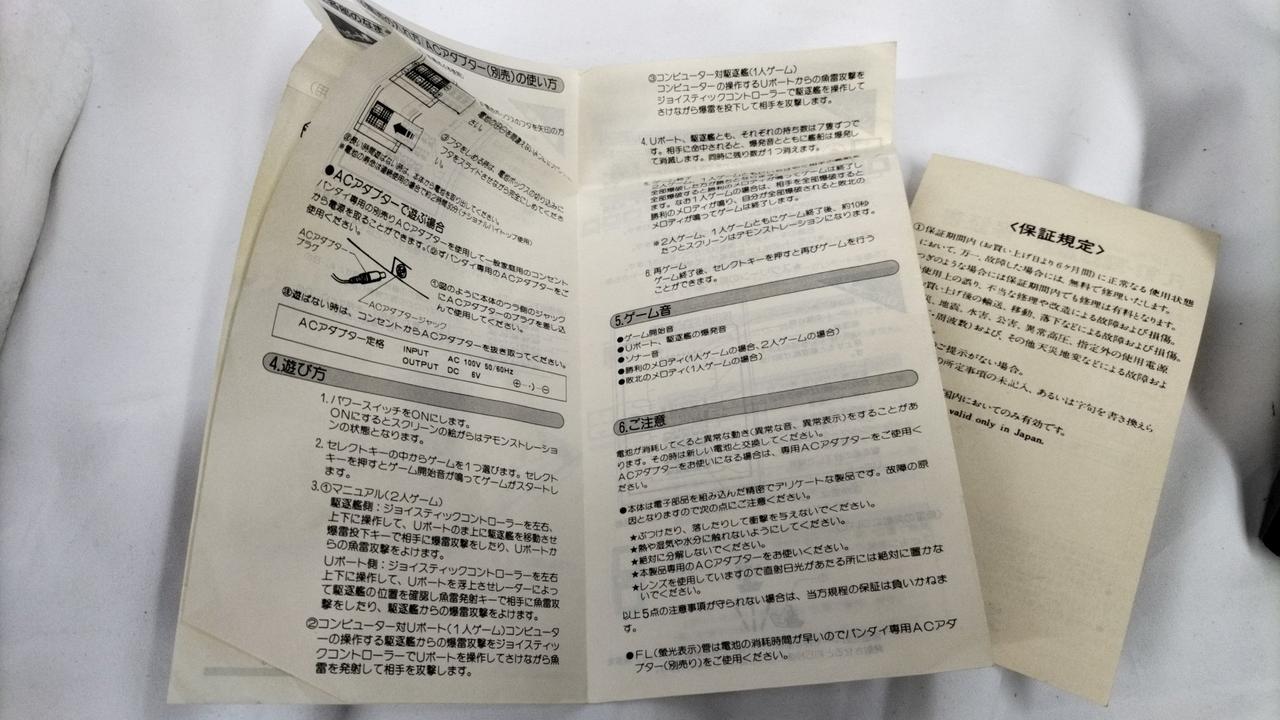 ACアダプター(別売)の使い方
③フタをしめる時は、電池ボックスの切り込みに
フタをスライドさせながら完全にしめてくださ
い。
●ACアダプターで遊ぶ場合
バンダイ専用の別売りACアダプターを使用して一般家庭用のコンセント
から電源を取ることができます。(必ずバンダイ専用のACアダプターをご
使用ください。)
ACアダプター
プラグ
ACアダプタージャック
①図のように本体のウラ側のジャック
にACアダプターのプラグを差し込
んで使用してください。
遊ばない時は、コンセントからACアダプターを抜き取ってください。
ACアダプター定格
INPUT AC 100V 50/60Hz
OUTPUT DC 6V
4.遊び方
1. パワースイッチをONにします。
ONにするとスクリーンの絵からはデモンストレーショ
ンの状態となります。
2. セレクトキーの中からゲームを1つ選びます。セレクト
キーを押すとゲーム開始音が鳴ってゲームがスタートし
ます。
3.①マニュアル(2人ゲーム)
駆逐艦側：ジョイスティックコントローラーを左右、
上下に操作して、Uボートのま上に駆逐艦を移動させ
爆雷投下キーで相手に爆雷攻撃をしたり、Uボートか
らの魚雷攻撃をよけます。
Uボート側：ジョイスティックコントローラーを左右
上下に操作して、Uボートを浮上させレーダーによっ
て駆逐艦の位置を確認し魚雷発射キーで相手に魚雷攻
撃をしたり、駆逐艦からの爆雷攻撃をよけます。
②コンピューター対Uボート(1人ゲーム)コンピュータ
ーの操作する駆逐艦からの爆雷攻撃をジョイスティッ
クコントローラーでUボートを操作してさけながら魚
雷を発射して相手を攻撃します。
③コンピューター対駆逐艦(1人ゲーム)
コンピューターの操作するUボートからの魚雷攻撃を
ジョイスティックコントローラーで駆逐艦を操作して
さけながら爆雷を投下して相手を攻撃します。
4. Uボート、駆逐艦とも、それぞれの持ち数は7隻ずつで
す。相手に命中されると、爆発音とともに艦船は爆発し
て消滅します。同時に残り数が1つ消えます。
全部爆破すると勝利のメロディが鳴ってゲームは終了し
ます。なお1人ゲームの場合は、相手を全部爆破すると
勝利のメロディが鳴り、自分が全部爆破されると敗北の
メロディが鳴ってゲームは終了します。
※2人ゲーム、1人ゲームともにゲーム終了後、約10秒
たつとスクリーンはデモンストレーションになります。
6. 再ゲーム
ゲーム終了後、セレクトキーを押すと再びゲームを行う
ことができます。
5.ゲーム音
●ゲーム開始音
●Uボート、駆逐艦の爆発音
●ソナー音
●勝利のメロディ(1人ゲームの場合、2人ゲームの場合)
●敗北のメロディ(1人ゲームの場合)
6.ご注意
電池が消耗してくると異常な動き(異常な音、異常表示)をすることがあ
ります。その時は新しい電池と交換してください。
ACアダプターをお使いになる場合は、専用ACアダプターをご使用く
ださい。
●本体は電子部品を組み込んだ精密でデリケートな製品です。故障の原
因となりますので次の点にご注意ください。
★ぶつけたり、落したりして衝撃を与えないでください。
★熱や湿気や水分に触れないようにしてください。
★絶対に分解しないでください。
★本製品専用のACアダプターをお使いください。
★レンズを使用していますので直射日光があたる所には絶対に置かな
いでください。
以上5点の注意事項が守られない場合は、当方規程の保証は負いかねま
す。
●FL(螢光表示)管は電池の消耗時間が早いのでバンダイ専用ACアダ
プター(別売り)をご使用ください。
〈保証規定〉
①保証期間内(お買い上げ日より6ケ月間)に正常なる使用状態
において、万一、故障した場合には、無料で修理いたします。
つぎのような場合には保証期間内でも修理は有料となります。
使用上の誤り、不当な修理や改造による故障および損傷。
買い上げ後の輸送、移動、落下などによる故障および損傷。
地震、水害、公害、異常高圧、指定外の使用電源
・周波数)および、その他天災地変などによる故障およ
ご提示がない場合。
の所定事項の未記入、あるいは字句を書き換えら
国内においてのみ有効です。
valid only in Japan.